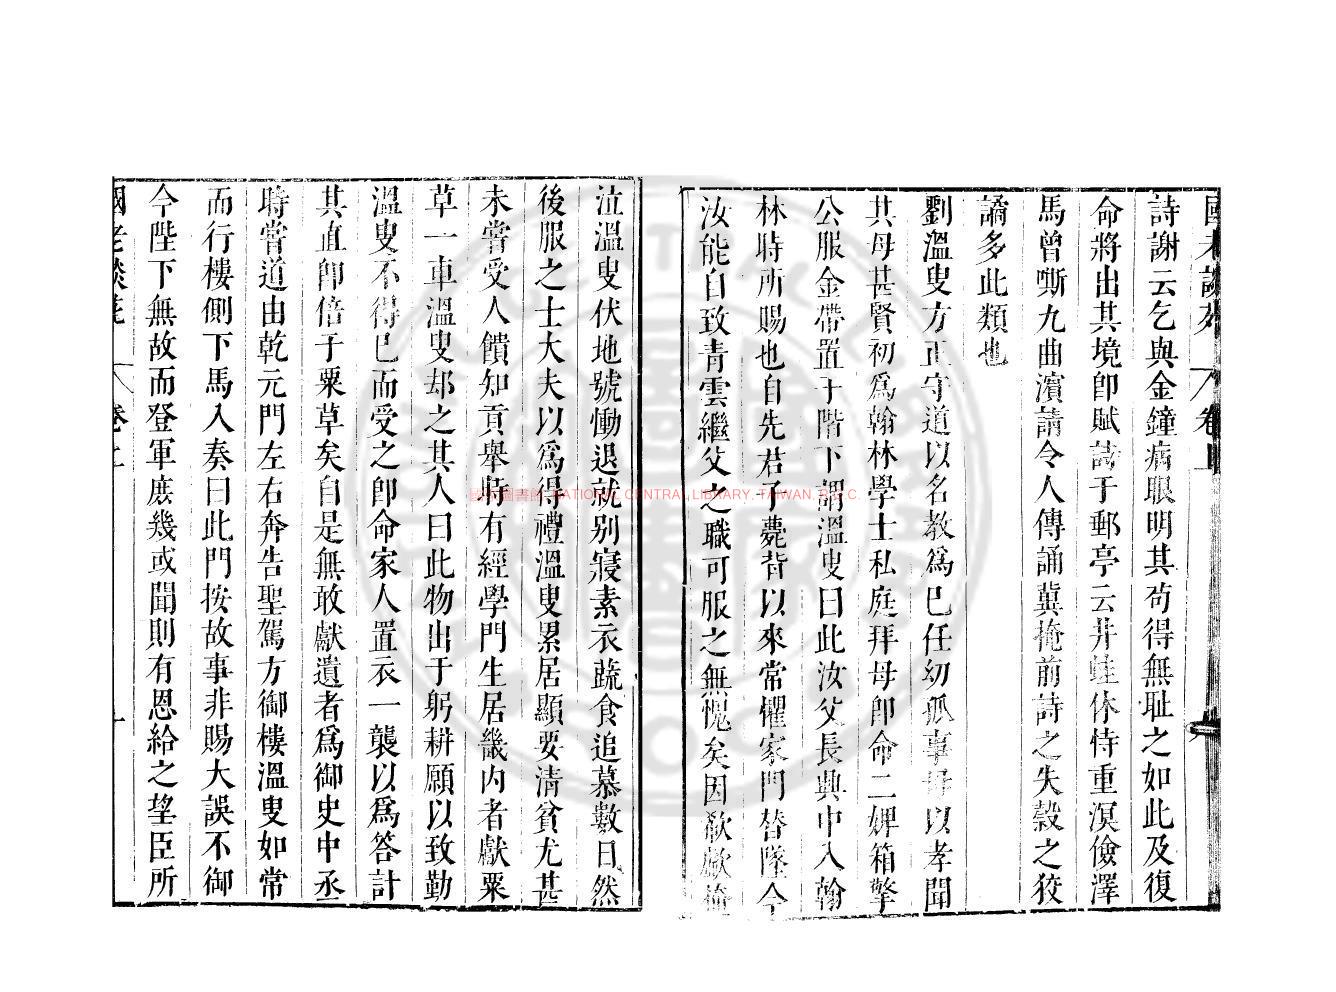 國老談苑 卷上
詩謝云乞與金鐘病眼明其苟得無耻之如此及復
命將出其境卽賦詩于郵亭云井蛙休恃重溟儉澤
馬曾嘶九曲濱請令人傳誦冀掩前詩之失穀之狡
譎多此類也
劉溫叟方正守道以名教爲己任幼孤事母以孝聞
其母甚賢初爲翰林學士私庭拜母卽命二婢箱擎
公服金帶置于階下謂溫叟曰此汝父長興中入翰
林時所賜也自先君子薨背以來常懼家門替墜今
汝能自致青雲繼父之職可服之無愧矣因欷歔掩
泣溫叟伏地號慟退就别寢素衣蔬食追慕數日然
後服之士大夫以爲得禮溫叟累居顯要清貧尤甚
未嘗受人饋知貢舉時有經學門生居畿内者獻粟
草一車溫叟却之其人曰此物出于躬耕願以致勤
溫叟不得已而受之卽命家人置衣一襲以爲答計
其直卽倍于粟草矣自是無敢獻遺者爲御史中丞
時嘗道由乾元門左右奔告聖駕方御樓溫叟如常
而行樓側下馬入奏曰此門按故事非賜大誤不御
今陛下無故而登軍庶幾或聞則有恩給之望臣所
國老談苑 卷上 十
國家圖書館 NATIONAL CENTRAL LIBRARY, TAIWAN, R.O.C.